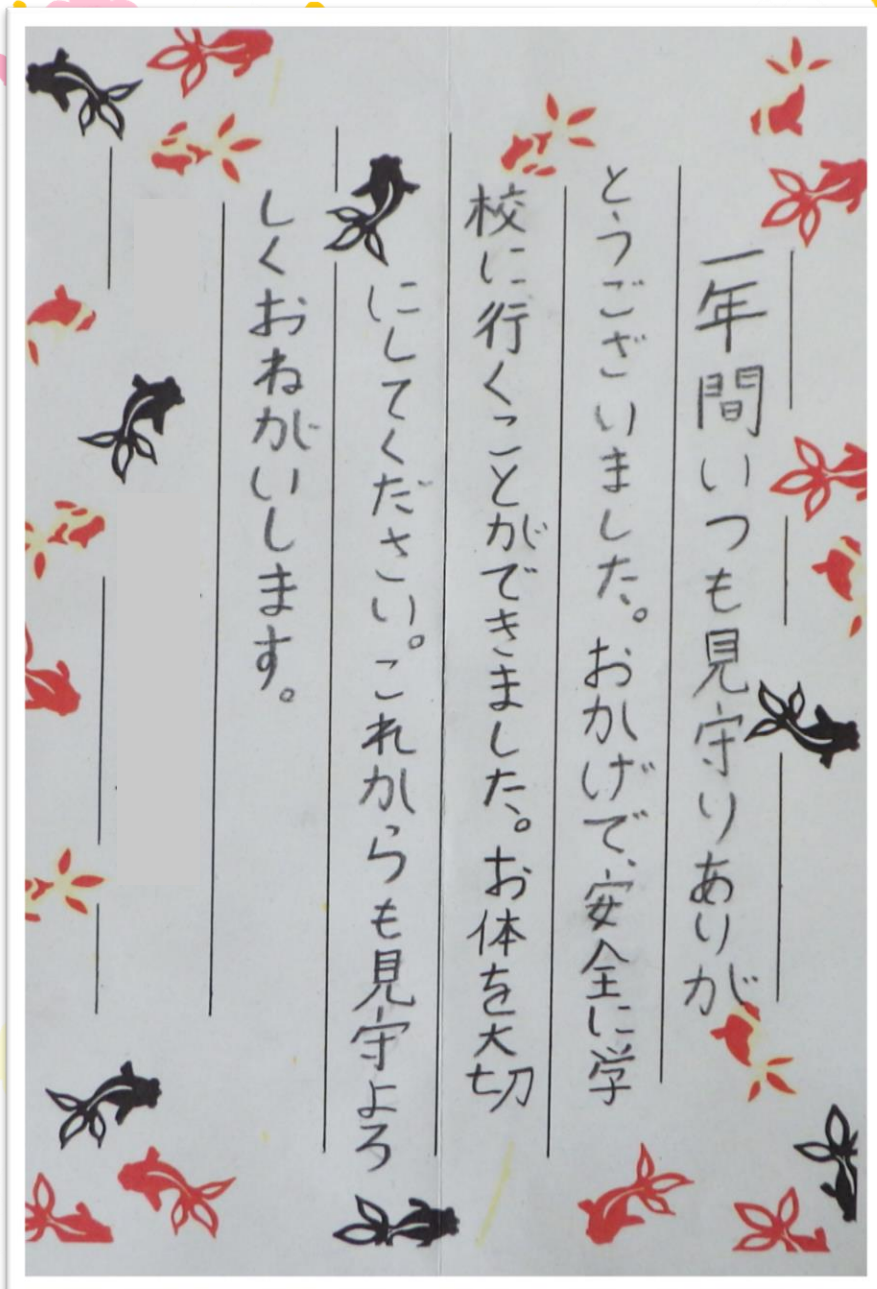 一年間いつも見守りありが
とうございました。おかげで、安全に学
校に行くことができました。お体を大切
にしてください。これからも見守よろ
しくおねがいします。